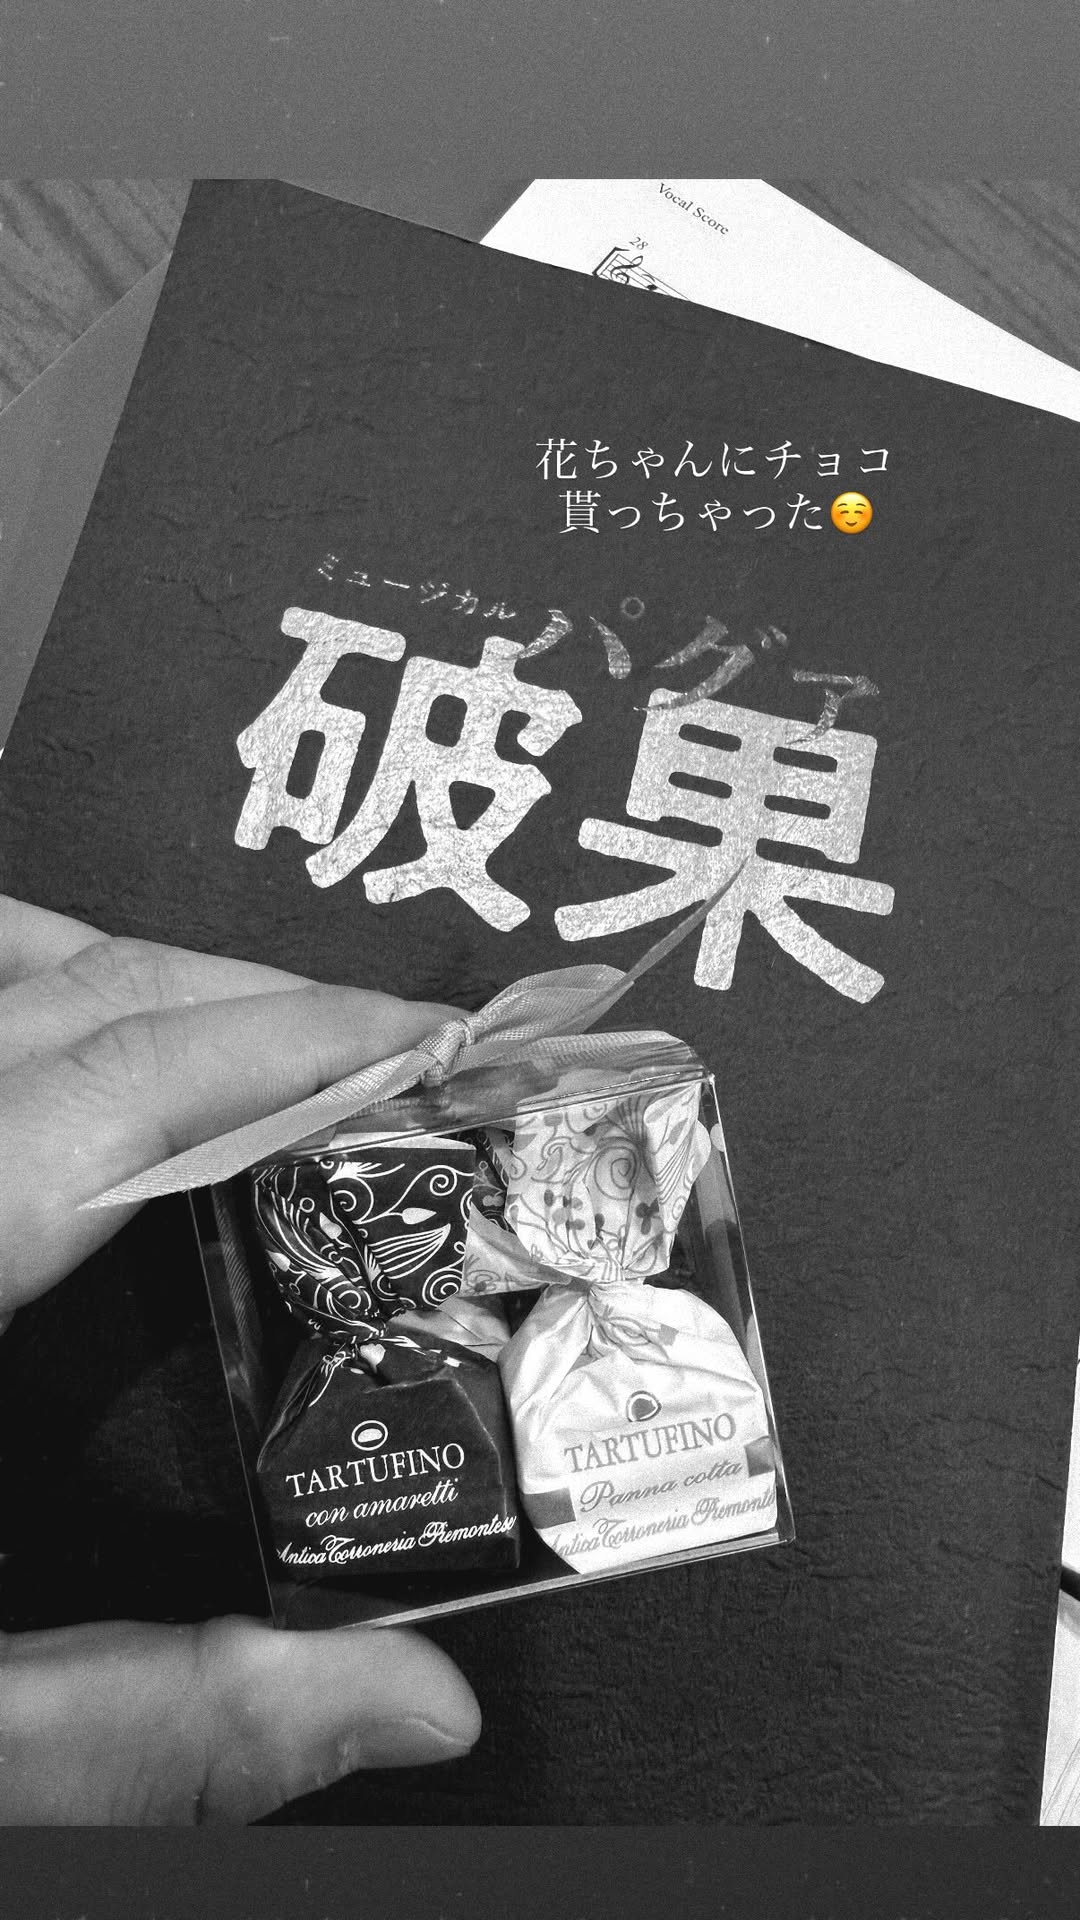 Vocal Score
28
花ちゃんにチョコ
貰っちゃった☺️
ミュージカル パグァ
破果
TARTUFINO
con amaretti
Antica Torroneria Piemontese
TARTUFINO
Panna cotta
Antica Torroneria Piemontese